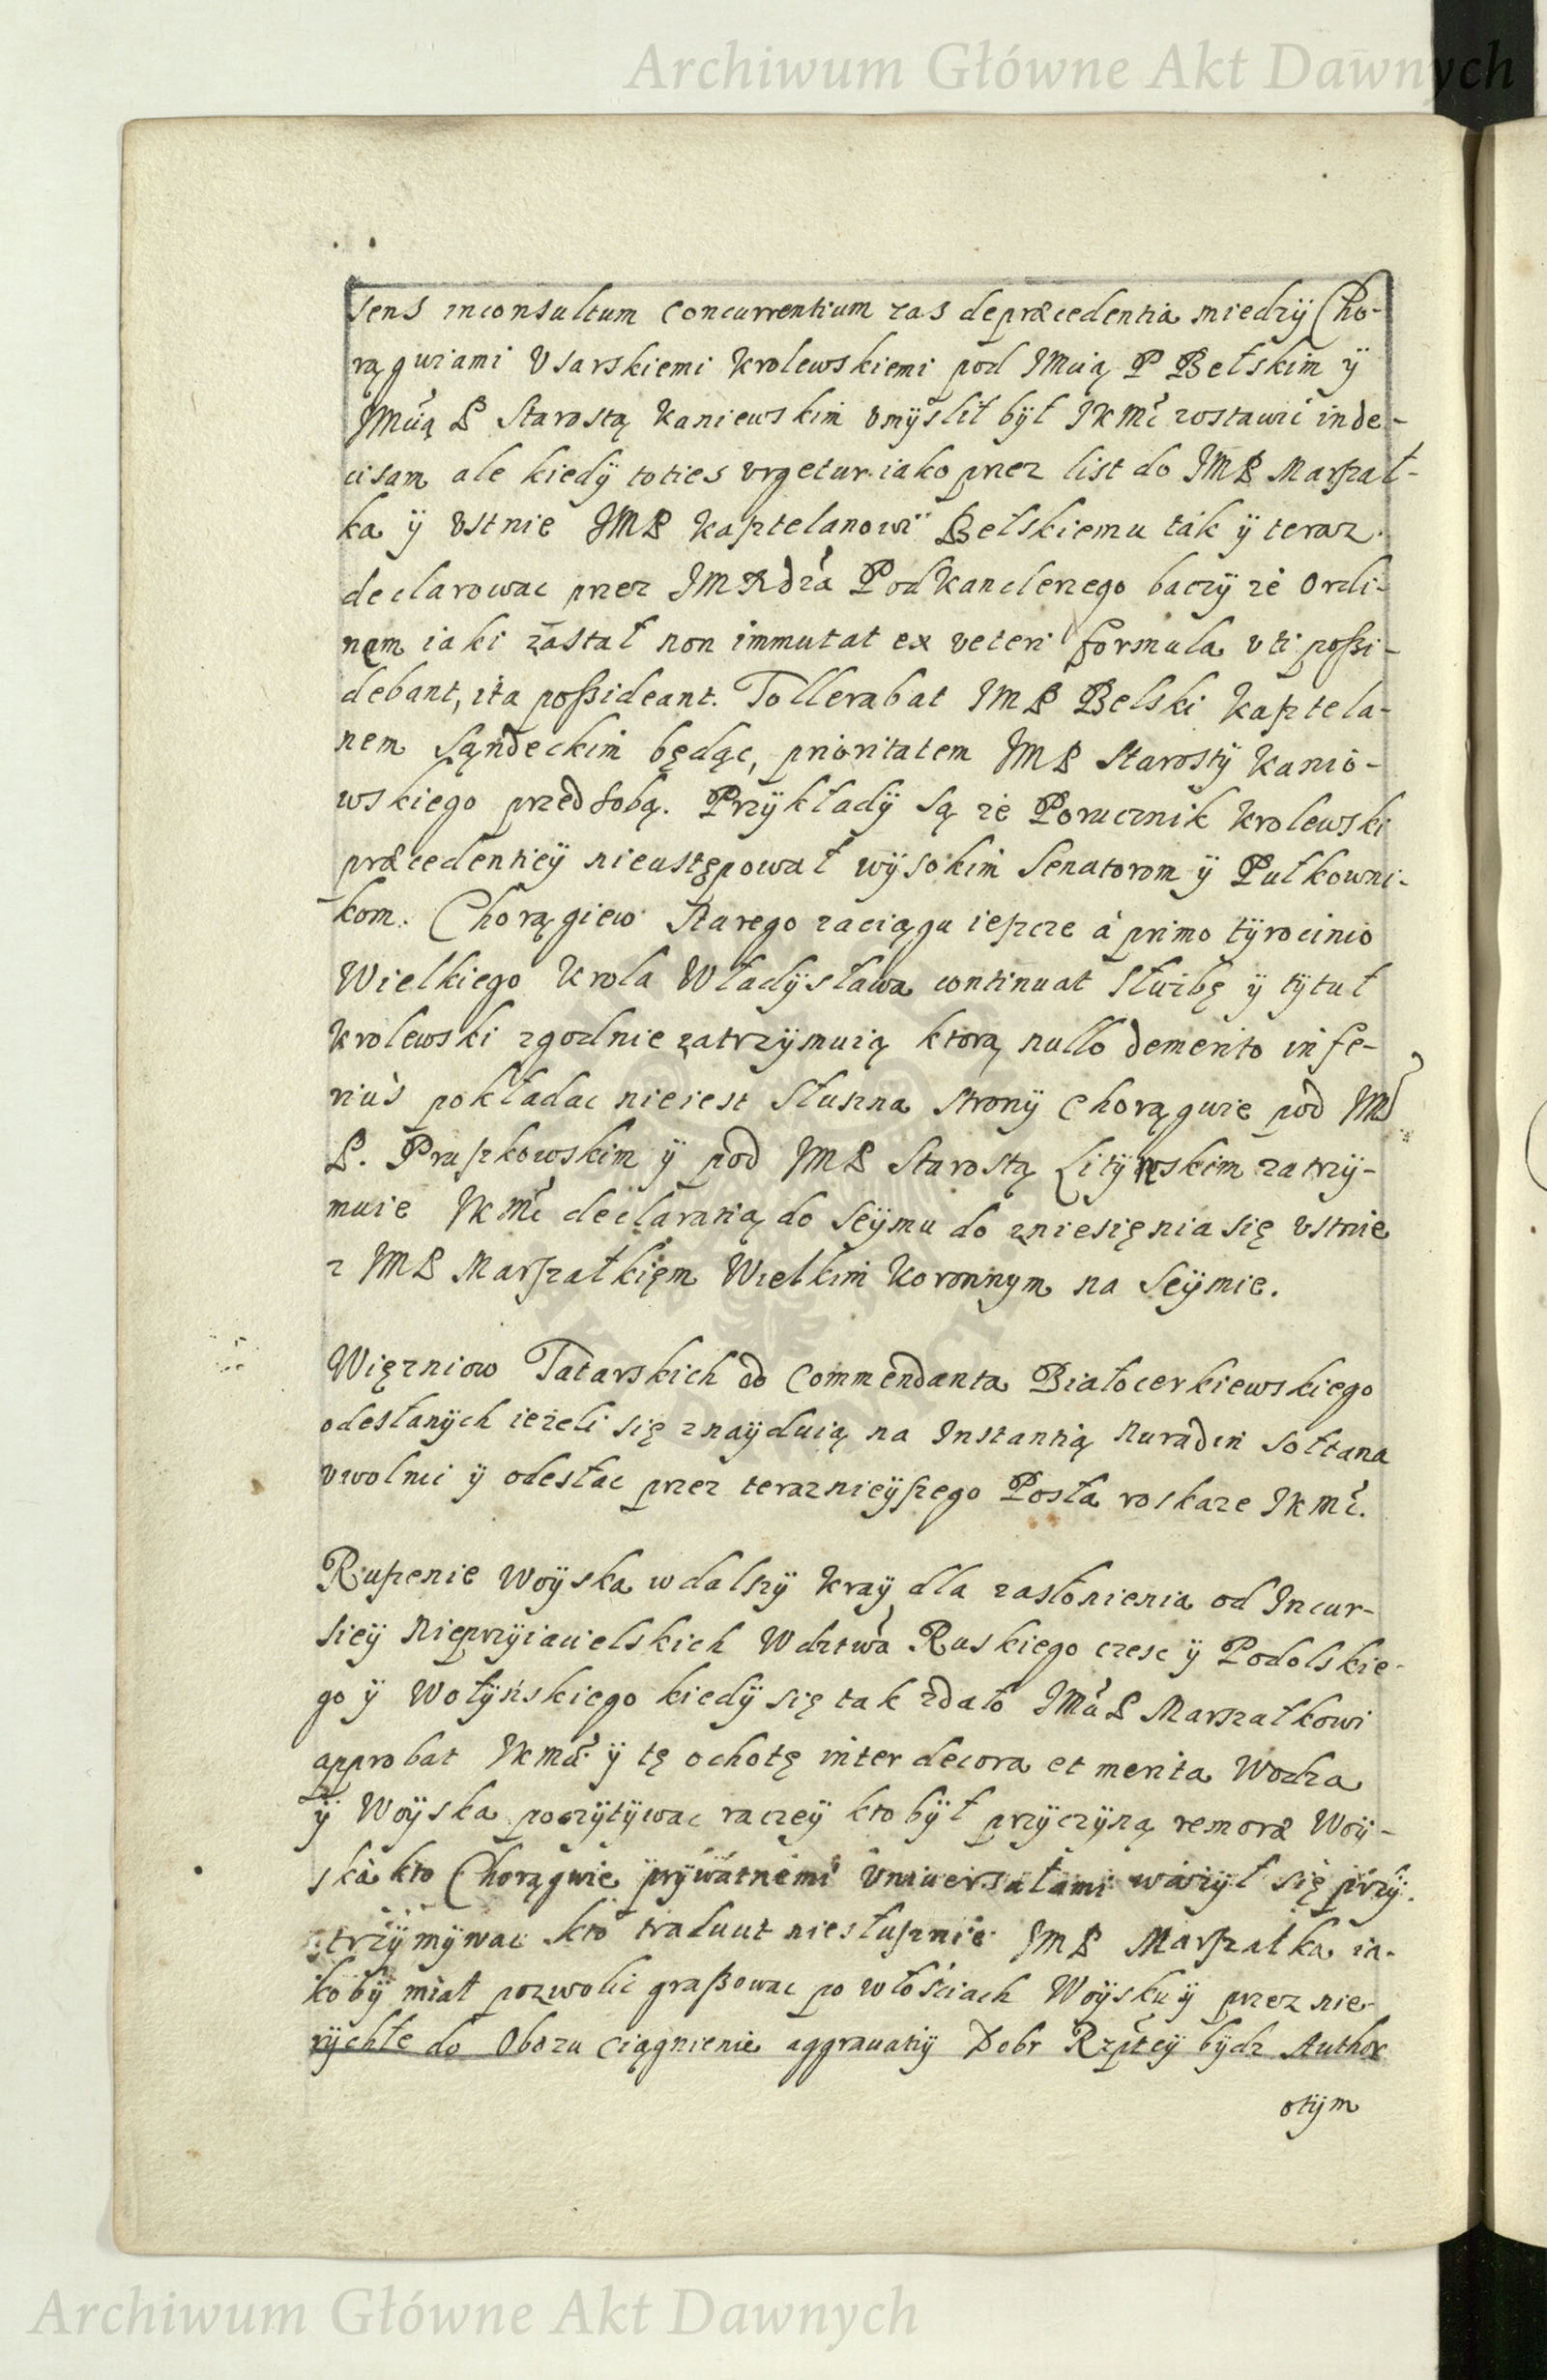 Archiwum Główne Akt Dawnych
sens inconsultum concurrentium zas de præcedentia miedzÿ Cho-
rągwiami Vsarskiemi Krolewskiemi pod JMcią P Bełskim ÿ
JMcią P Starostą Kaniewskim vmÿslił bÿł JKMć zostawić inde-
cisam ale kiedÿ toties vrgetur iako przez list do JMP Marszał-
ka ÿ Vstnie JMP Kasztelanowi Bełskiemu tak ÿ teraz
declarowac przez JMXdza PodKanclerzego baczÿ że Ordi-
nem iaki zastał non immutat ex veteri formula vti possi-
debant, ita possideant. Tollerabat JMP Belski Kasztela-
nem Sąndeckim będąc, prioritatem JMP Starostÿ Kanio-
wskiego przed sobą. Przÿkładÿ są że Porucznik Krolewski
præcedentieÿ nieustępował wÿsokim Senatorom ÿ Pułkowni-
kom. Chorągiew starego zaciągu ieszcze à primo tÿrocinio
Wielkiego Krola Władÿsława continuat służbę ÿ tÿtuł
Krolewski zgodnie zatrzÿmuią ktorą nullo demerito infe-
riùs pokładac nieiest słuszna stronÿ chorągwie pod JM
P. Pruszkowskim ÿ pod JMP Starostą Litÿnskim zatrzÿ-
muie JKMć declaratią do Seÿmu do zniesięnia się vstnie
z JMP Marszałkięm Wielkim Koronnym na Seÿmie.
Więzniow Tatarskich do Commendanta Białocerkiewskiego
odesłanÿch ieżeli się znaÿduią na Instantią Nuradin Sołtana
vwolnić ÿ odesłac przez teraznieÿszego Posła roskaze JKMć.
Ruszenie Woÿska w dalszÿ Kraÿ dla zasłonienia od Incur-
sieÿ Nieprzÿiacielskich Wdztwa Ruskiego czesc ÿ Podolskie-
go ÿ Wołÿńskiego kiedÿ się tak zdało JMcu P Marszałkowi
approbat JKMć ÿ tę ochotę inter decora et merita Wodza
ÿ Woÿska poczÿtÿwac raczeÿ kto bÿł przÿczÿną remoræ Woÿ-
ska kto Chorągwie prÿwatnemi Vniuersałami wazÿł się przÿ-
trzÿmÿwac kto traduut niesłusznie JMP Marszałka ia-
kobÿ miał pozwolic grassowac po włościach Woÿsku ÿ przez nie-
rÿchłe do Obozu ciągnienie aggrauatiÿ Dobr Rzpteÿ bÿdz Author
otÿm
Archiwum Główne Akt Dawnych